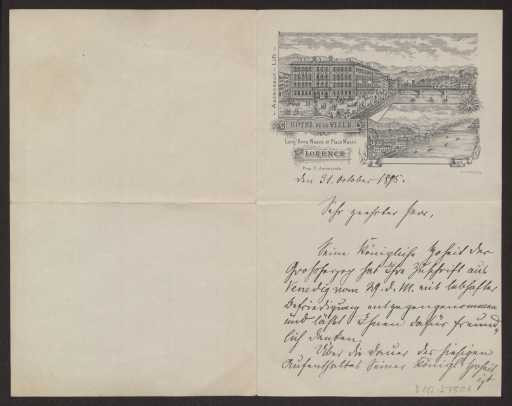 Ascenseur-Lift
HÔTEL DE LA VILLE
Lung' Arno Nuovo et Place Manin
FLORENCE
den 31. October 1895.
Sehr geehrter Herr,
Seine Königliche Hoheit der
Großherzog hat Ihre Zuschrift aus
Venedig vom 29. d. M. mit lebhafter
Befriedigung entgegengenommen
und läßt Ihnen dafür freund-
lich danken.
Über die Dauer des hiesigen
Aufenthaltes Seiner Königl. Hoheit
ist